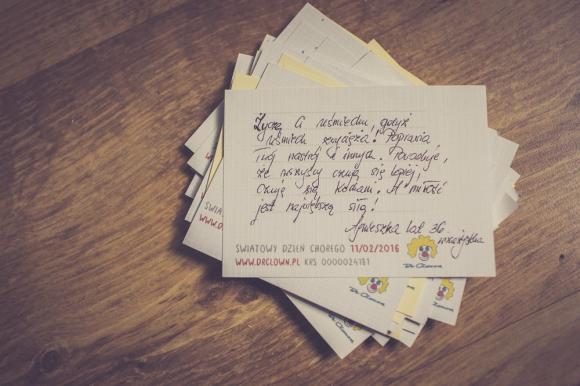 Życzę Ci uśmiechu, gdyż
uśmiech zwycięża! Poprawia
Twój nastrój i innych. Powoduje,
że wszyscy czują się lepiej,
czują się kochani. A miłość
jest największą siłą!
Agnieszka lat 36
ŚWIATOWY DZIEŃ CHOREGO 11/02/2016
WWW.DRCLOWN.PL KRS 0000024181
Dr Clown
ŚWIATOWY
WWW.D
Dr Clown